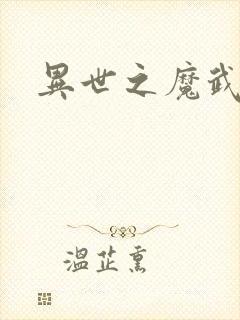 異世之魔武
溫芷熏